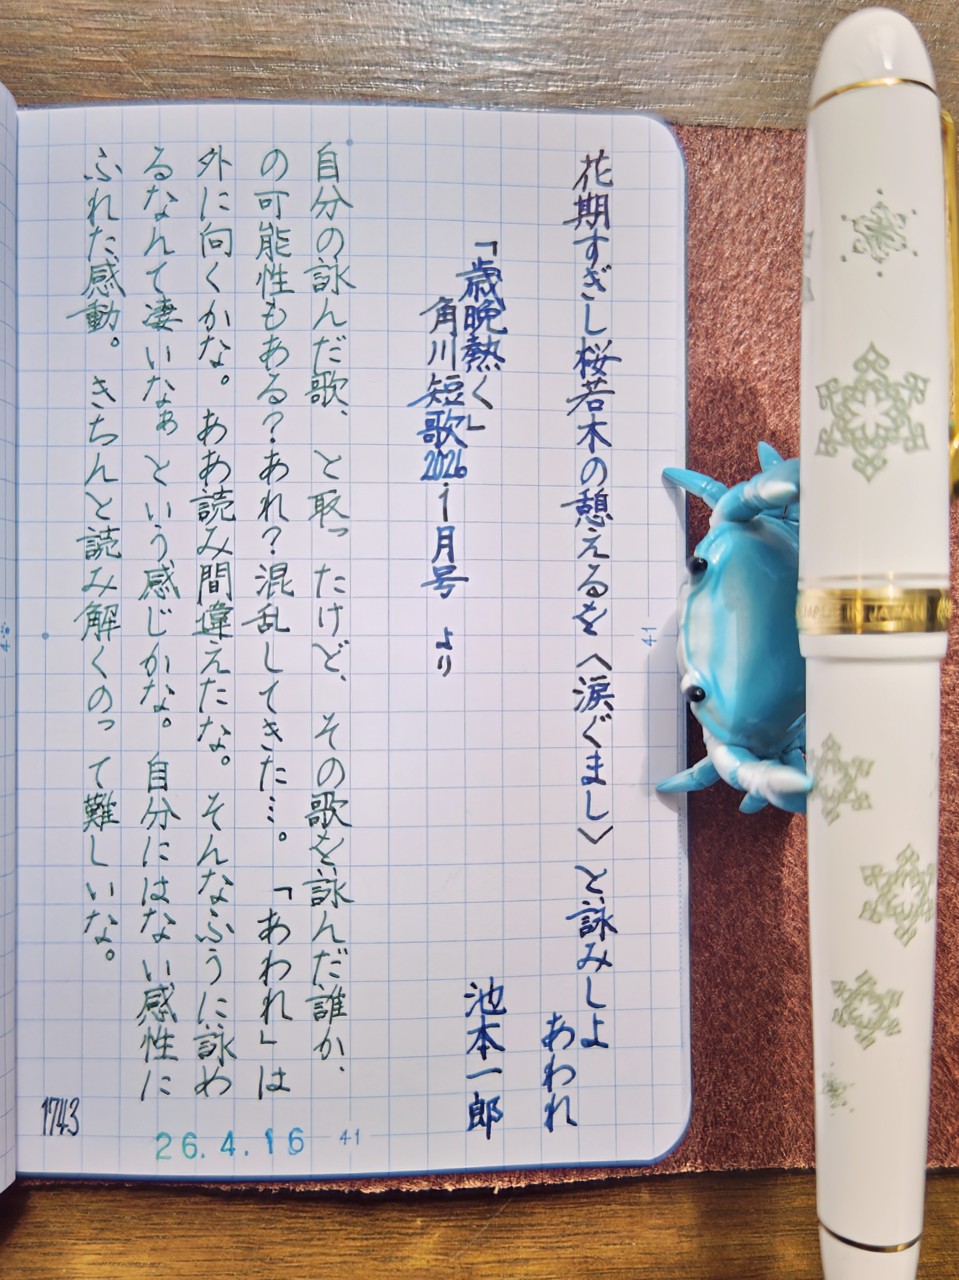 花期すぎし桜若木の憩えるを〈涙ぐまし〉と詠みしよ
あわれ
「歳晩熱く」
角川短歌2026年1月号 より
池本一郎
自分の詠んだ歌、と取ったけど、その歌を詠んだ誰か、
の可能性もある?あれ?混乱してきた…。「あわれ」は
外に向くかな。ああ読み間違えたな。そんなふうに詠め
るなんて凄いなぁ という感じかな。自分にはない感性に
ふれた感動。きちんと読み解くのって難しいな。
1743
26.4.16
41
41